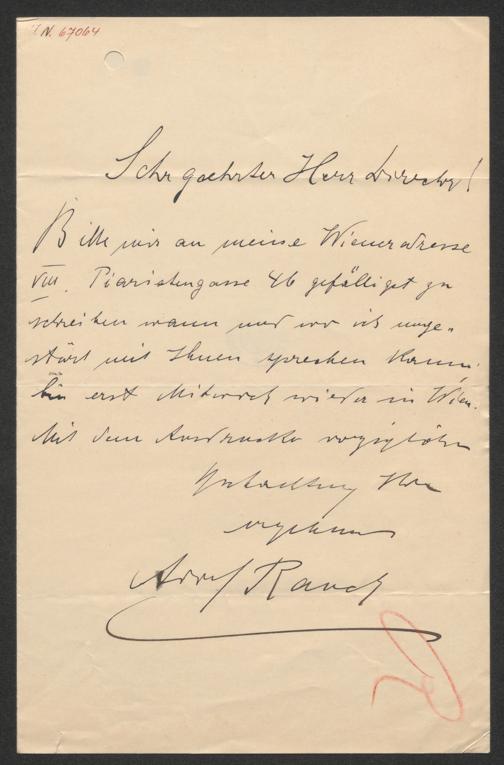 N. 67064
Sehr geehrter Herr Director!
Bitte mir an meine Wieneradresse
VIII. Piaristengasse 46 gefälligst zu
schreiben wann und wo ich unge-
stört mit Ihnen sprechen kann,
bin erst Mittwoch wieder in Wien.
Mit dem Ausdrucke vorzüglicher
Hochachtung Ihr
ergebener
Adolf Rauch